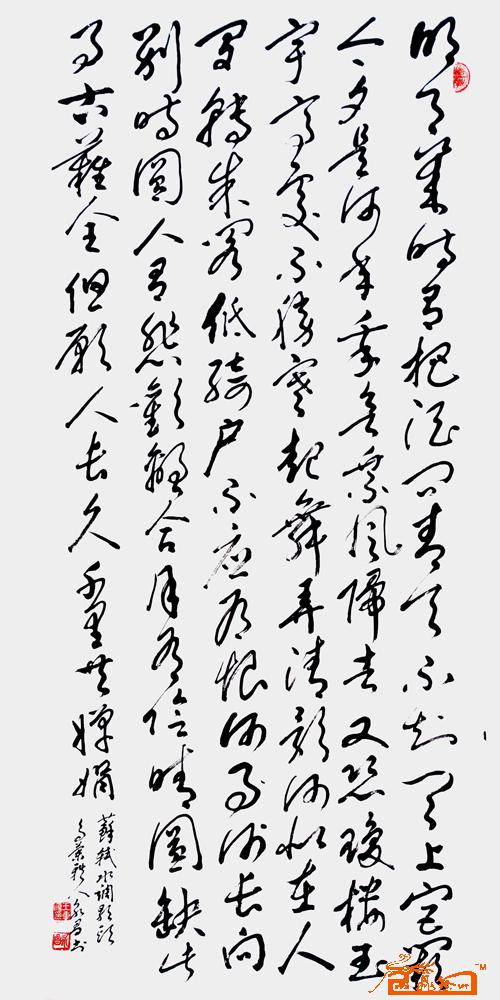 明月幾時有把酒問青天不知天上宮闕
今夕是何年我欲乘風歸去又恐瓊樓玉
宇高處不勝寒起舞弄清影何似在人
間轉朱閣低綺戶不應有恨何事長向
別時圓人有悲歡離合月有陰晴圓缺此
事古難全但願人長久千里共嬋娟
蘇軾水調歌頭